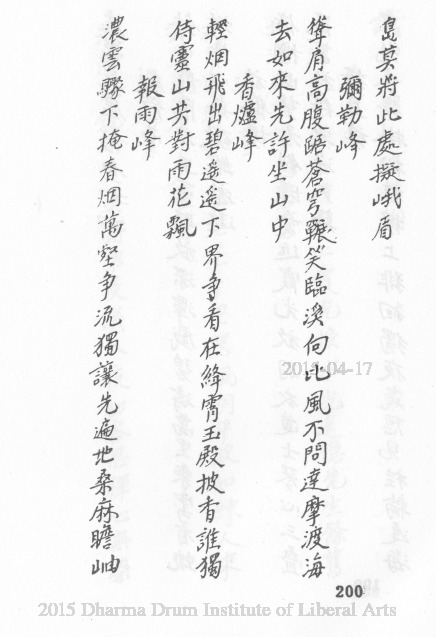 島莫將此處擬峨眉
彌勒峰
聳肩高腹踞蒼穹囅笑臨溪向北風不問達摩渡海
去如來先許坐山中
香爐峰
輕烟飛出碧遥遥下界爭看在絳霄玉殿披香誰獨
侍靈山共對雨花飄
報雨峰
濃雲驟下掩春烟萬壑爭流獨讓先遍地桑麻瞻岫
2015-04-17
200
2015 Dharma Drum Institute of Liberal Arts